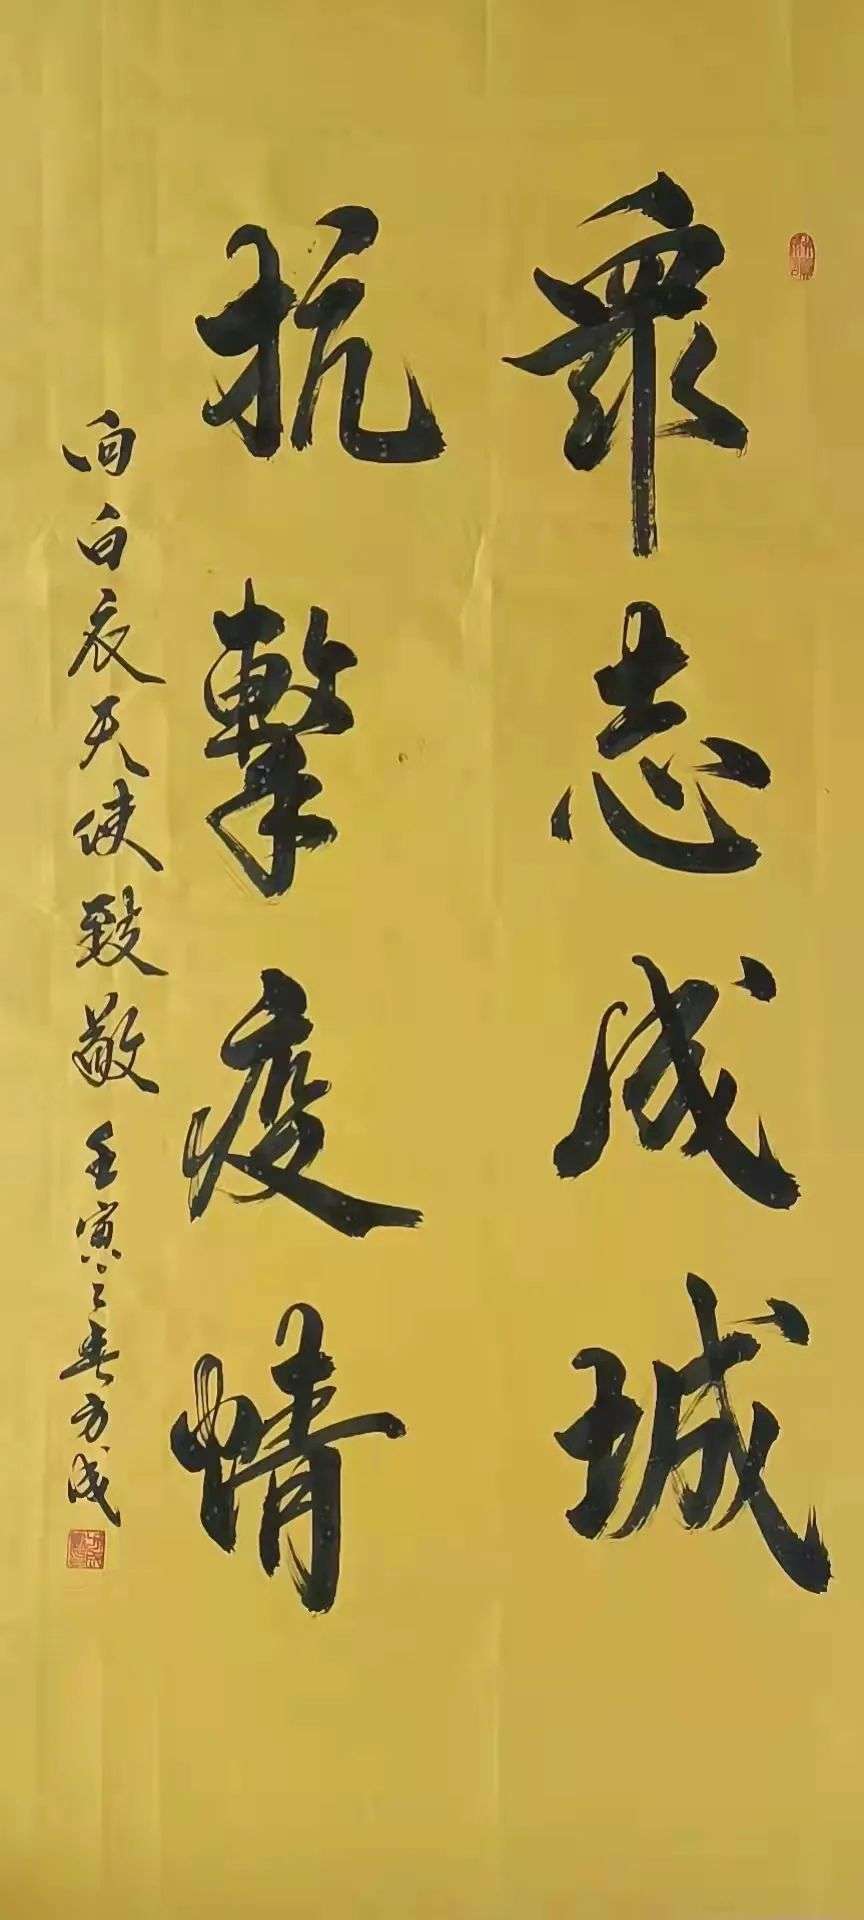 眾志成城
抗擊疫情
向白衣天使致敬壬寅之春方成